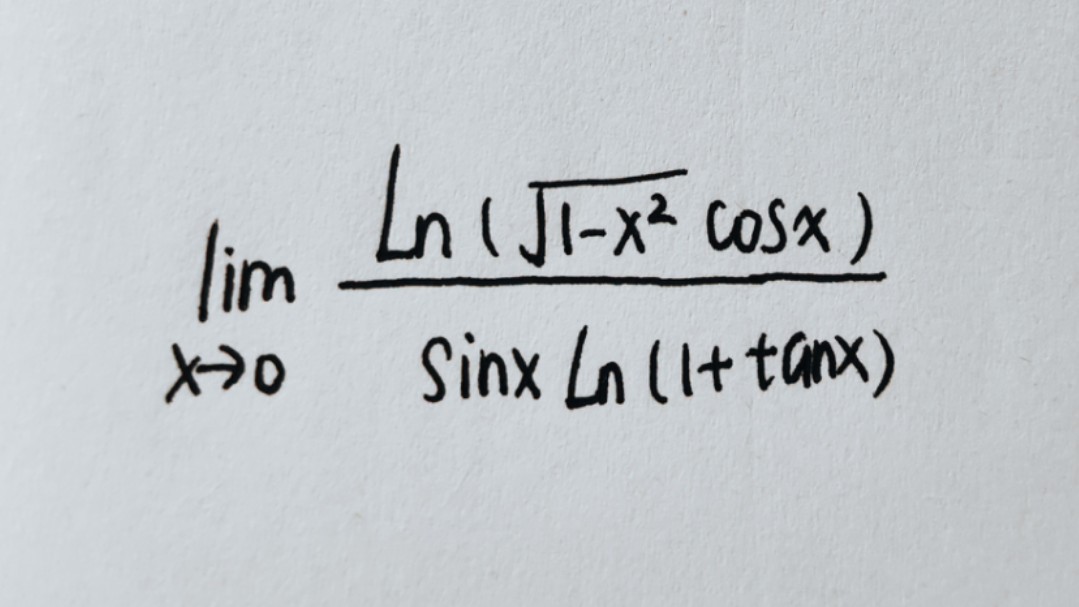 lim Ln(√1-x² cosx)
x→0 sinx Ln(1+tanx)